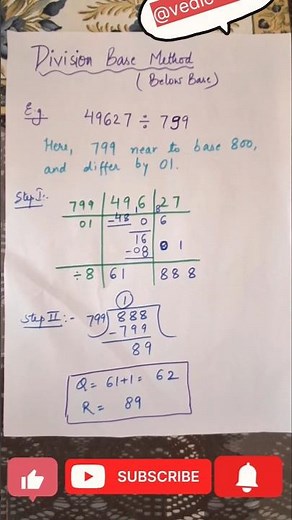 @vedic
Division Base Method
(Below Base)
E.g 49627 ÷ 799
Here, 799 near to base 800,
and differ by 01.
Step I:-
799 | 49,6 | 8 27
01 | -48 0 | 6
16
-08 | 0 1
÷8 | 61 | 888
Step II:- 1
799) 888
-799
89
Q = 61+1 = 62
R = 89
SUBSCRIBE